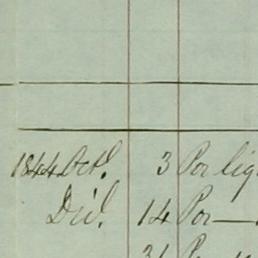 1844 Oct. 3 Por lig
Dic. 14 Por —
31